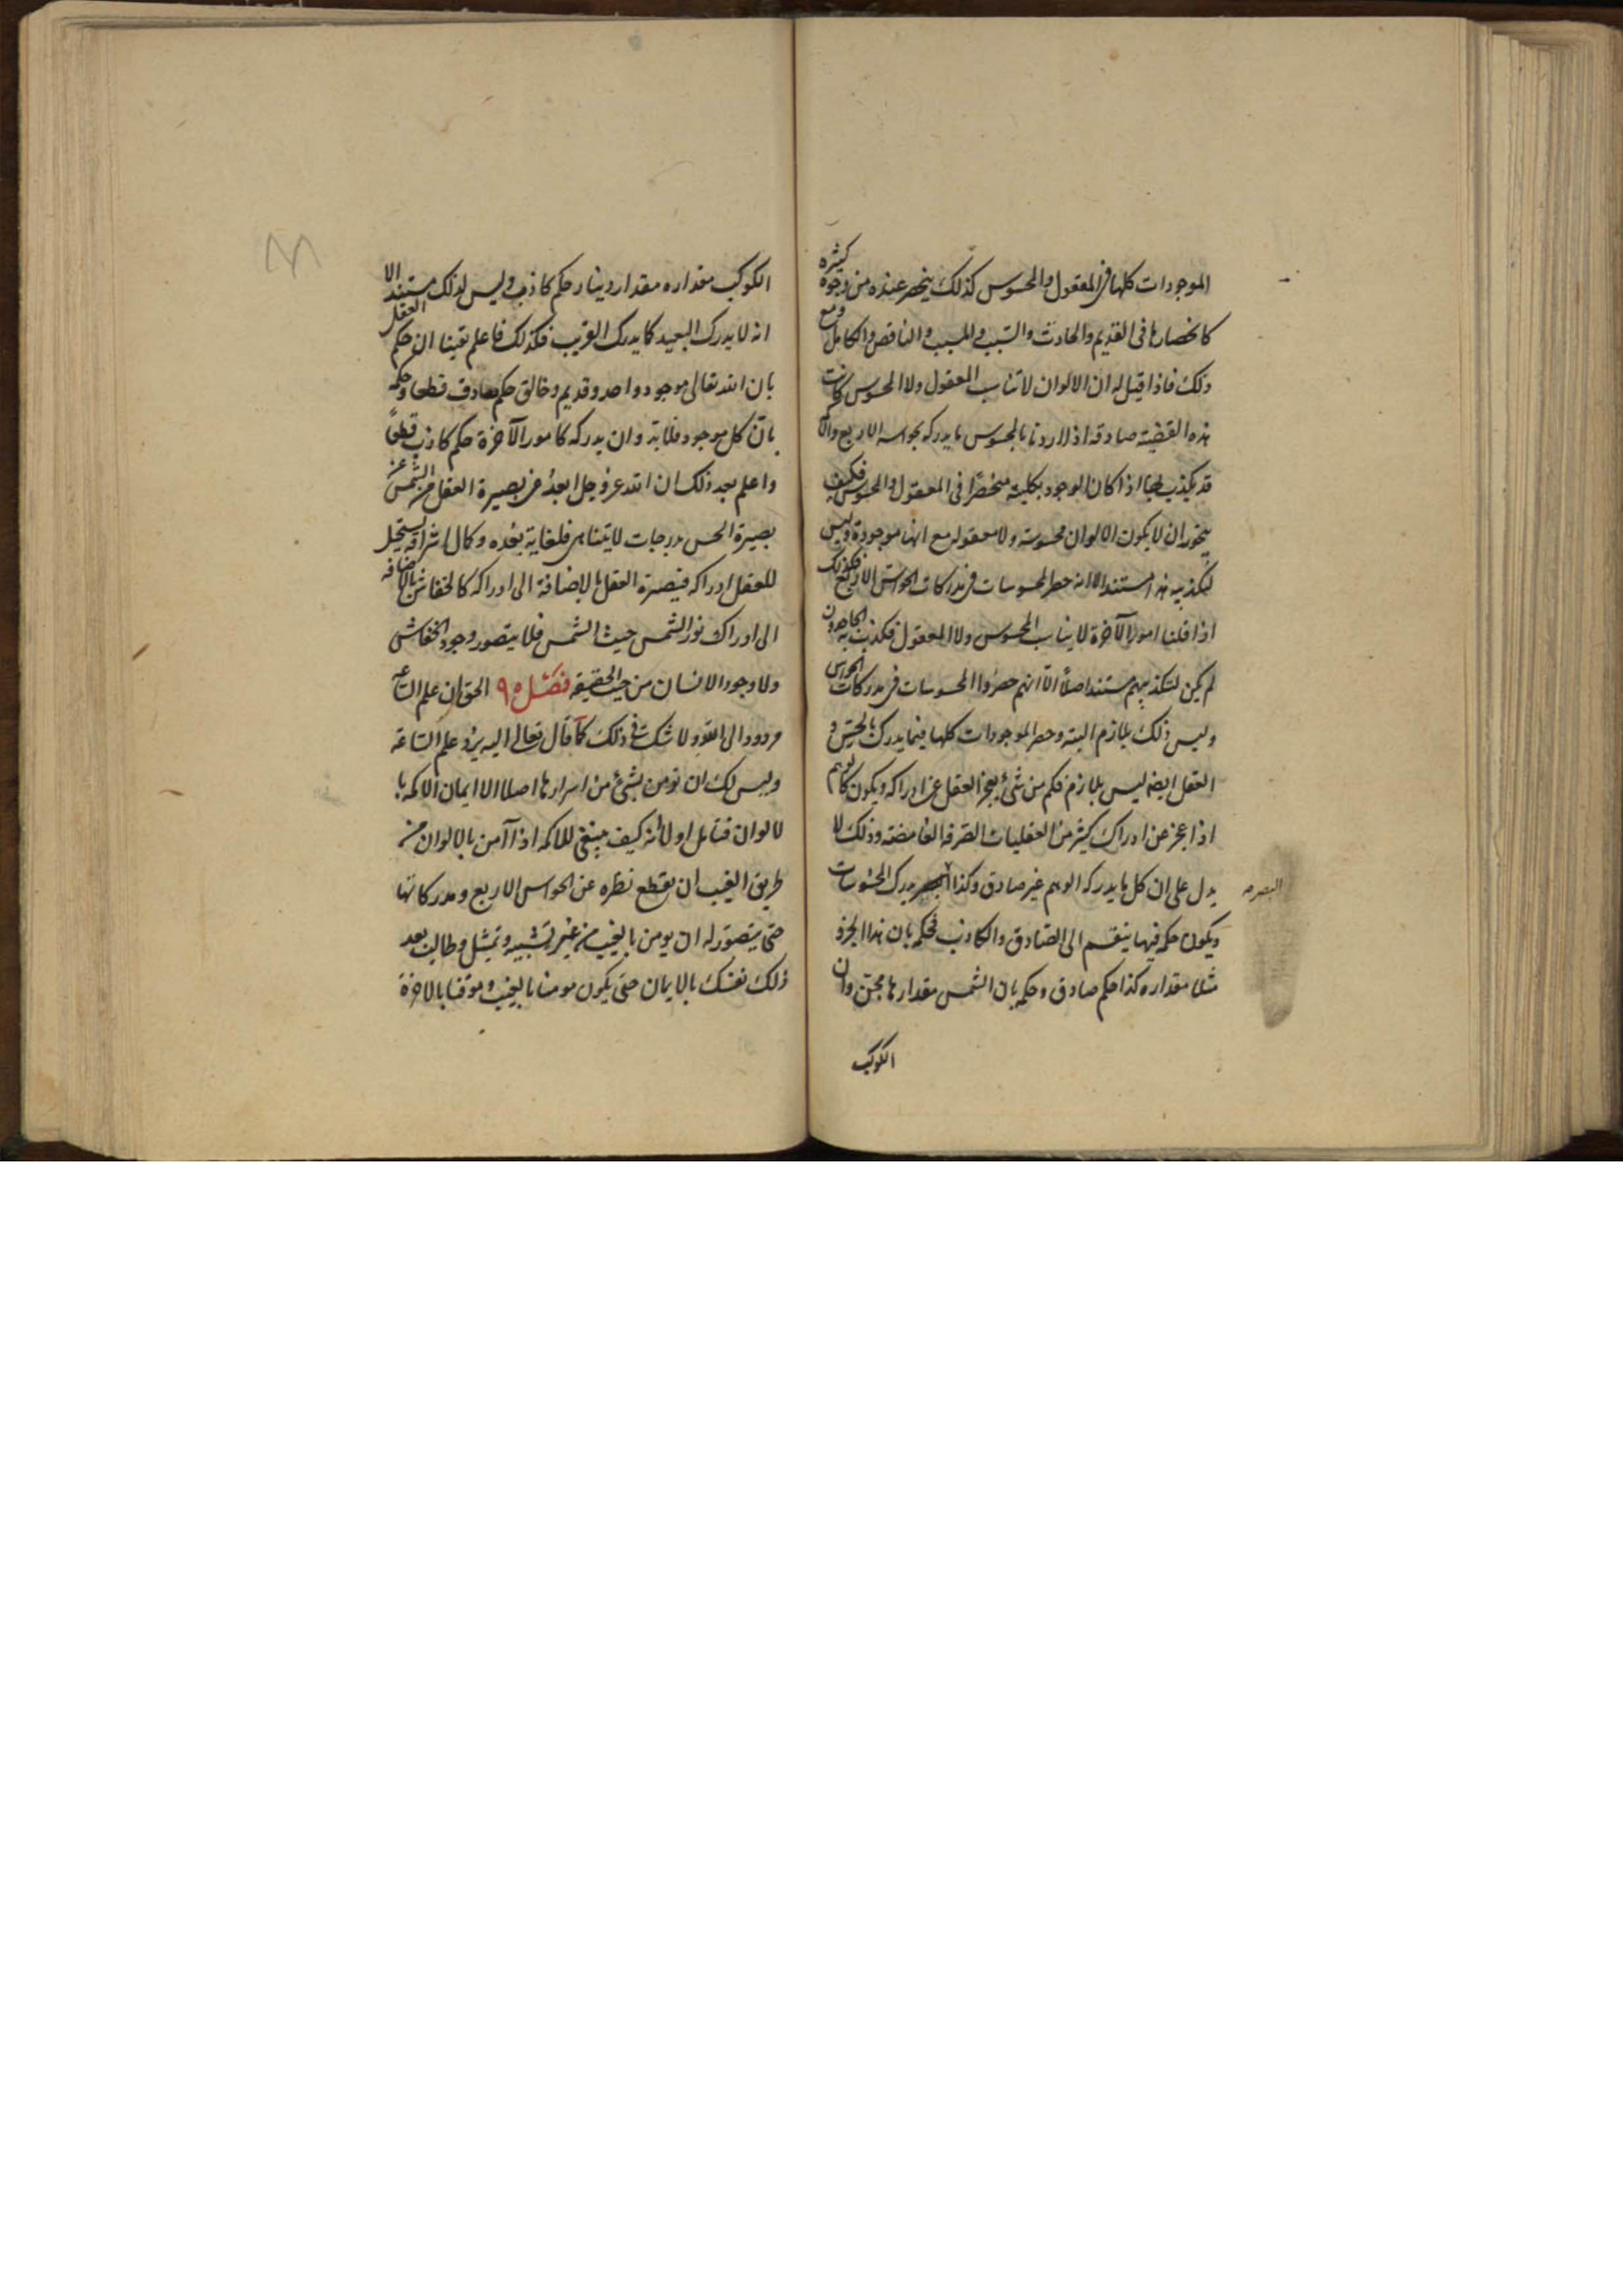 الموجودات كلها فى المعقول والمحسوس كذلك ينحصر عنده من وجوه كثيره
كانحصارها فى القديم والحادث والسبب والمسبب والناقص والكامل ومع
ذلك فاذا قيل له ان الالوان لا تناسب المعقول ولا المحسوس كانت
هذه القضية صادقة اذا اردنا بالمحسوس ما يدركه بحواسه الاربع والا
قد يكذب بها اذا كان الوجود بكليته منحصرا فى المعقول والمحسوس فكيف
يجوز ان لا يكون الالوان محسوسة ولا معقوله مع انها موجودة وليس
لتكذيبه هذا مستند الا انه حصر المحسوسات فى مدركات الحواس الاربع فكذلك
اذا قلنا امور الآخرة لا يناسب المحسوس ولا المعقول فكذب به الجاحدون
لم يكن لتكذيبهم مستند اصلاً الّا انهم حصروا المحسوسات فى مدركات الحواس
وليس ذلك بلازم البته وحصر الموجودات كلها فيما يدرك بالحس و
العقل ايضا ليس بلازم فكم من شئ يعجز العقل عن ادراكه ويكون كالوهم
اذا عجز عن ادراك كثير من العقليات الصرفه الغامضة وذلك لا
يدل على ان كل ما يدركه الوهم غير صادق وكذا البصر يدرك المحسوسات
البصر
ويكون حكمه فيها ينقسم الى الصّادق والكاذب فحكمه بان هذا الجزو
مثلا مقداره كذا حكم صادق وحكمه بان الشمس مقدارها مجن وان
الكوكب
الكوكب مقداره مقدار دينار حكم كاذب وليس لذلك مستند الا
انه لا يدرك البعيد كما يدرك القريب فكذلك فاعلم يقينا ان حكم العقل
بان الله تعالى موجود واحد وقديم وخالق حكم صادق قطعا وحكمه
بان كل موجود فلا بد وان يدركه كامور الآخرة حكم كاذب قطعاً
واعلم بعد ذلك ان الله عز وجل ابعد من بصيرة العقل من الشمس عن
بصيرة الحس بدرجات لا يتناهى فلغاية بعده وكمال اشراقه يستحيل
للعقل ادراكه فبصيرة العقل بالاضافة الى ادراكه كالخفاش بالاضافه
الى ادراك نور الشمس حيث الشمس فلا يتصور وجود الخفاش
ولا وجود الانسان من حيث الحقيقه فصل ٩٥ الحق ان علم الساعه
مردود الى الله ولا شك فى ذلك كما قال تعالى اليه يرد علم الساعة
وليس لك ان تومن بشئ من اسرارها اصلا الا ايمان الاكمه با
لالوان فتامل اولا انه كيف ينبغى للاكمه اذا آمن بالالوان من
طريق الغيب ان يقطع نظره عن الحواس الاربع ومدركاتها
حتى يتصوّر له ان يومن بالغيب من غير تشبيه وتمثل وطالب بعد
ذلك نفسك بالايمان حتى يكون مومنا بالغيب وموقنا بالاخرة